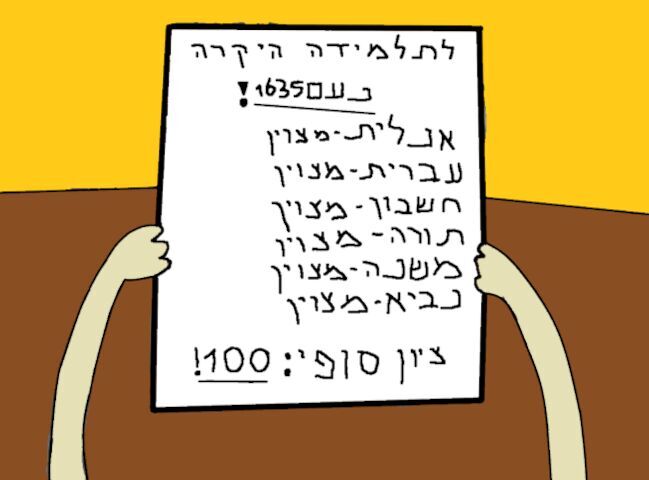 לתלמידה היקרה
נעם1635!
אנלית-מצוין
עברית-מצוין
חשבון-מצוין
תורה-מצוין
משנה-מצוין
נביא-מצוין
ציון סופי: 100!